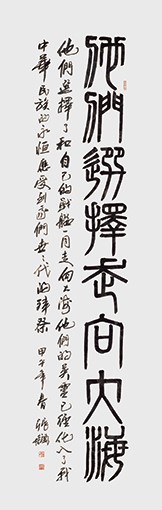 他们選擇走向大海
他們選擇了和自己的戰艦一同走向大海他們的英靈已經化入了我
中華民族的永恒應受到我們世世代代的拜祭
甲午年春